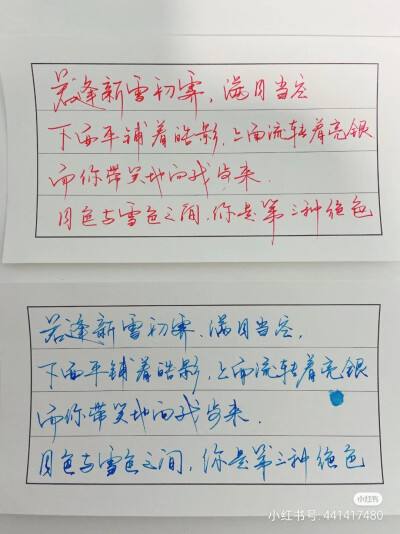 若逢新雪初霁，满月当空
下面平铺着皓影，上面流转着亮银
而你带笑地向我步来．
月色与雪色之间，你是第三种绝色
若逢新雪初霁，满月当空，
下面平铺着皓影，上面流转着亮银
而你带笑地向我步来，
月色与雪色之间，你是第三种绝色
小红书
小红书号: 441417480